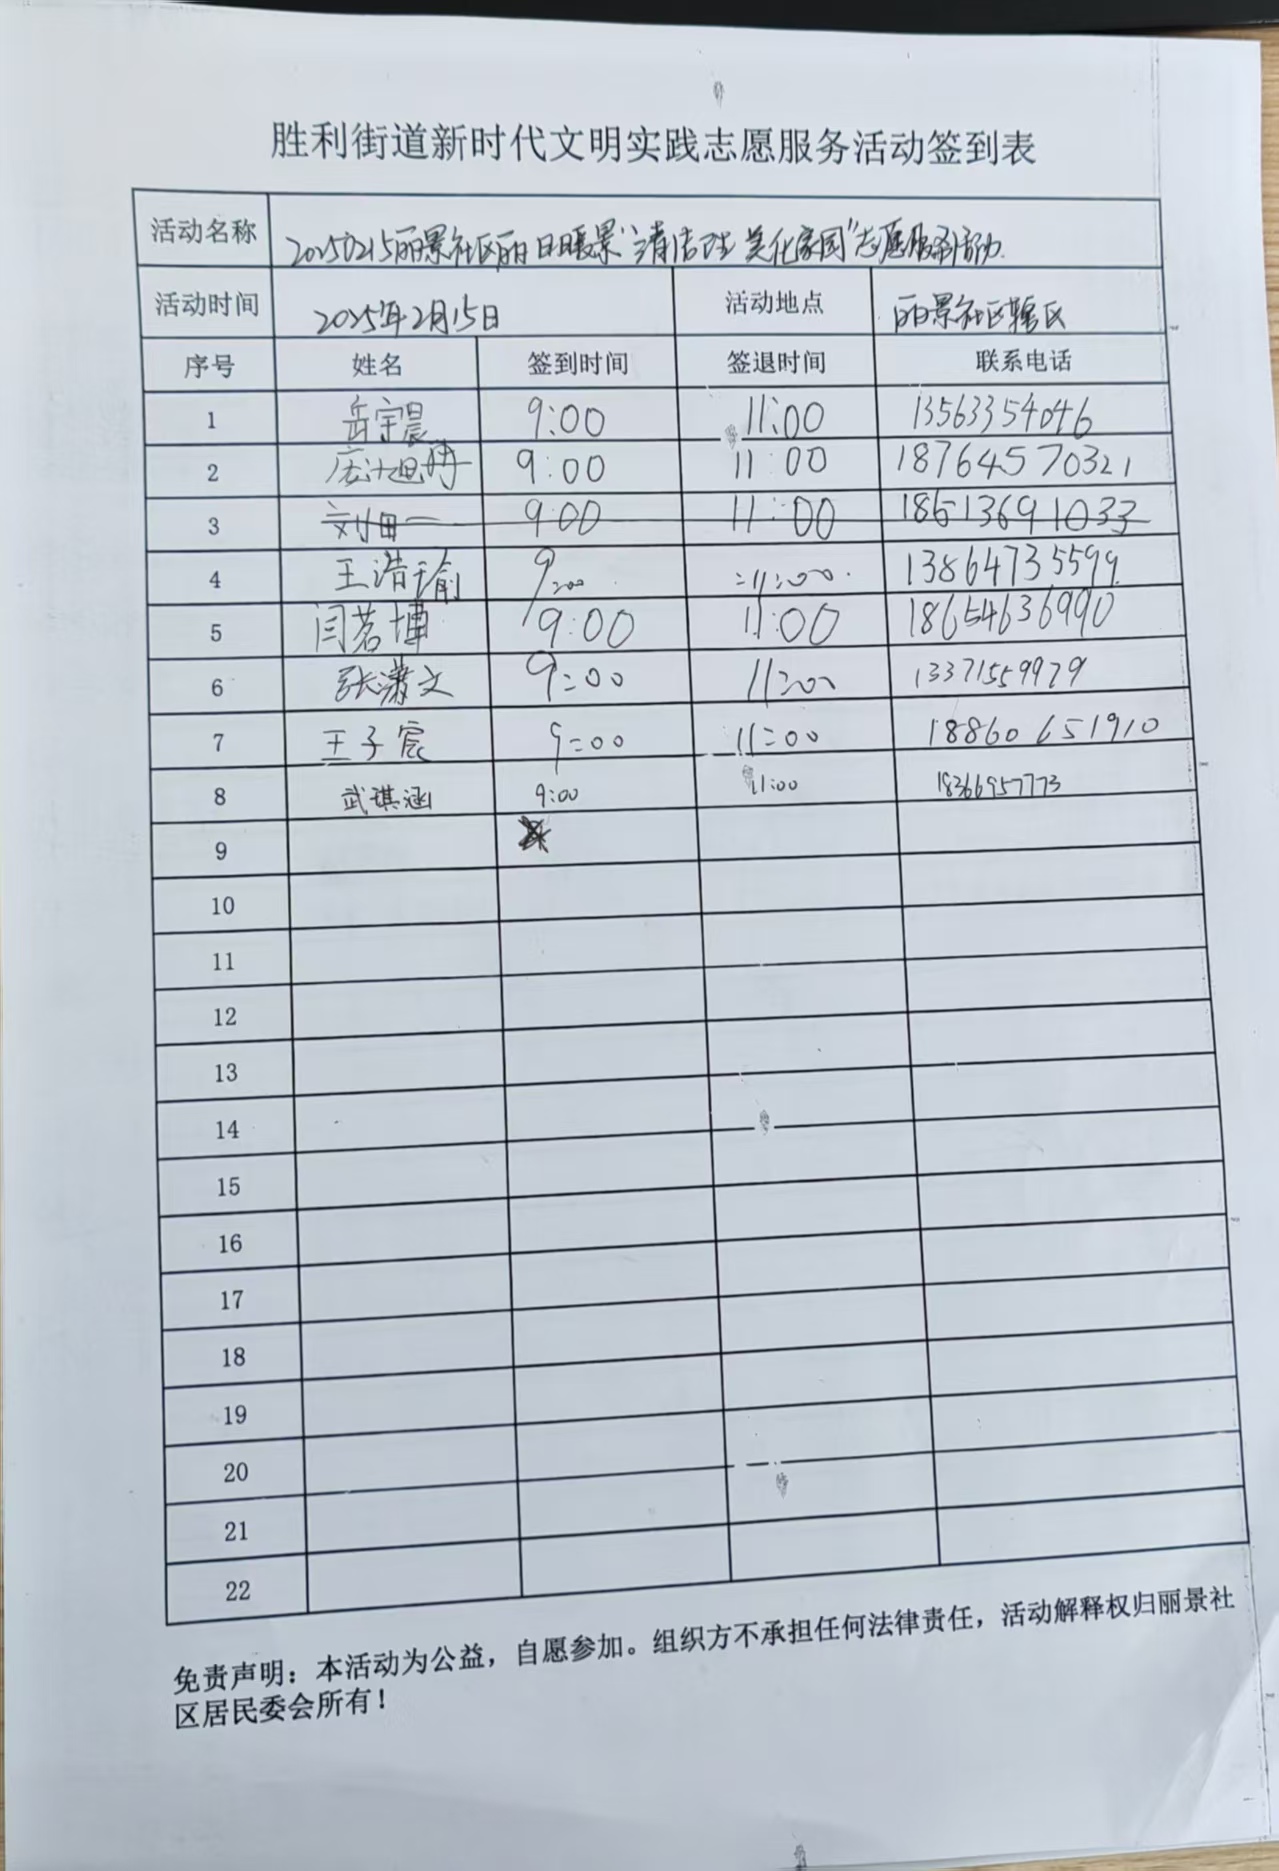 胜利街道新时代文明实践志愿服务活动签到表
活动名称 20250215丽景社区丽日暖景"清洁 美化家园"志愿服务活动
活动时间 2025年2月15日 活动地点 丽景社区辖区
序号 姓名 签到时间 签退时间 联系电话
1 岳宇晨 9:00 11:00 13563354046
2 9:00 11:00 18764570321
3 刘田一 9:00 11:00 18613691033
4 王浩瑜 9:00 11:00 13864735599
5 闫茗博 9:00 11:00 18654636990
6 张潇文 9:00 11:00 13371559979
7 王子宸 9:00 11:00 18860651910
8 武琪涵 9:00 11:00 18366957773
9
10
11
12
13
14
15
16
17
18
19
20
21
22
免责声明：本活动为公益，自愿参加。组织方不承担任何法律责任，活动解释权归丽景社
区居民委会所有！